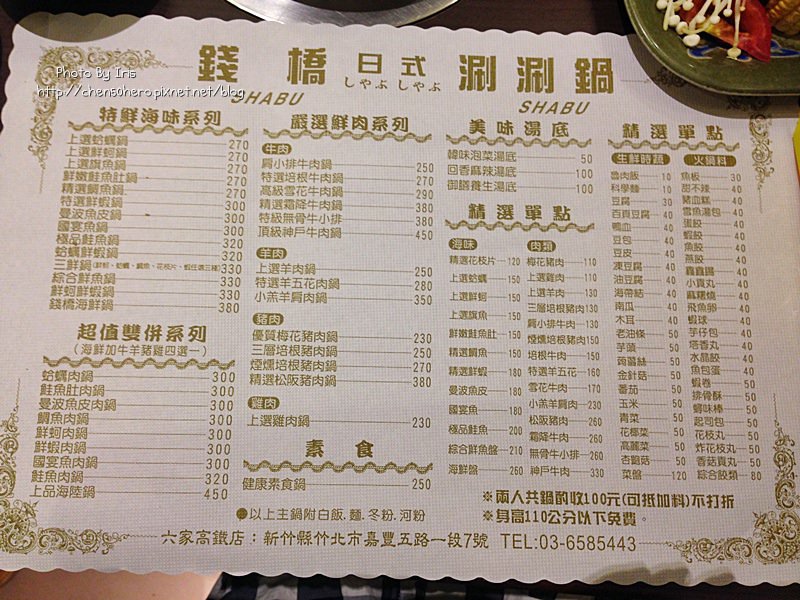 Photo By Iris
http://chensohero.pixnet.net/blog
錢橋 日式 涮涮鍋
しゃぶ しゃぶ
SHABU SHABU
特鮮海味系列
上選蛤蠣鍋 270
上選鮮蚵鍋 270
上選旗魚鍋 270
鮮嫩鮭魚肚鍋 270
精選鯛魚鍋 270
特選鮮蝦鍋 300
曼波魚皮鍋 300
國宴魚鍋 300
極品鮭魚鍋 320
蛤蠣鮮蝦鍋 320
三鮮鍋(鮮蚵、蛤蠣、鯛魚、花枝片、蝦任選三種) 330
綜合鮮魚鍋 330
鮮蚵鮮蝦鍋 330
錢橋海鮮鍋 380
超值雙併系列
(海鮮加牛羊豬雞四選一)
蛤蠣肉鍋 300
鮭魚肚肉鍋 300
曼波魚皮肉鍋 300
鯛魚肉鍋 300
鮮蚵肉鍋 300
鮮蝦肉鍋 300
國宴魚肉鍋 300
鮭魚肉鍋 320
上品海陸鍋 450
嚴選鮮肉系列
牛肉
肩小排牛肉鍋 250
特選培根牛肉鍋 250
高級雪花牛肉鍋 290
精選霜降牛肉鍋 380
特級無骨牛小排 380
頂級神戶牛肉鍋 450
羊肉
上選羊肉鍋 250
特選羊五花肉鍋 280
小羔羊肩肉鍋 350
豬肉
優質梅花豬肉鍋 230
三層培根豬肉鍋 250
煙燻培根豬肉鍋 270
精選松阪豬肉鍋 380
雞肉
上選雞肉鍋 230
素食
健康素食鍋 250
●以上主鍋附白飯.麵.冬粉.河粉
美味湯底
韓味泡菜湯底 50
回香麻辣湯底 100
御膳養生湯底 100
精選單點
海味
精選花枝片 120
上選蛤蠣 150
上選鮮蚵 150
上選旗魚 150
鮮嫩鮭魚肚 150
精選鯛魚 150
精選鮮蝦 180
曼波魚皮 180
國宴魚 180
極品鮭魚 200
綜合鮮魚盤 210
海鮮盤 260
肉類
梅花豬肉 110
上選雞肉 110
上選羊肉 130
三層培根豬肉 130
肩小排牛肉 130
煙燻培根豬肉 150
培根牛肉 150
特選羊五花 160
雪花牛肉 170
小羔羊肩肉 230
松阪豬肉 260
霜降牛肉 260
無骨牛小排 260
神戶牛肉 330
精選單點
生鮮時蔬
魯肉飯 10
科學麵 10
豆腐 30
百頁豆腐 40
鴨血 40
豆包 40
豆皮 40
凍豆腐 40
油豆腐 40
海帶結 40
南瓜 40
木耳 40
老油條 50
芋頭 50
蒟蒻絲 50
金針菇 50
番茄 50
玉米 50
青菜 50
花椰菜 50
高麗菜 50
杏鮑菇 50
菜盤 120
火鍋料
魚板 30
甜不辣 40
豬血糕 40
雪魚湯包 40
蛋餃 40
蝦餃 40
魚餃 40
燕餃 40
鑫鑫腸 40
小貢丸 40
麻糬燒 40
飛魚卵 40
蝦球 40
芋仔包 40
塔香丸 40
水晶餃 40
魚包蛋 40
蝦卷 50
排骨酥 50
蟳味棒 50
起司包 50
花枝丸 50
炸花枝丸 50
香菇貢丸 50
綜合餃類 80
※兩人共鍋酌收100元(可抵加料)不打折
※身高110公分以下免費。
六家高鐵店：新竹縣竹北市嘉豐五路一段7號 TEL:03-6585443